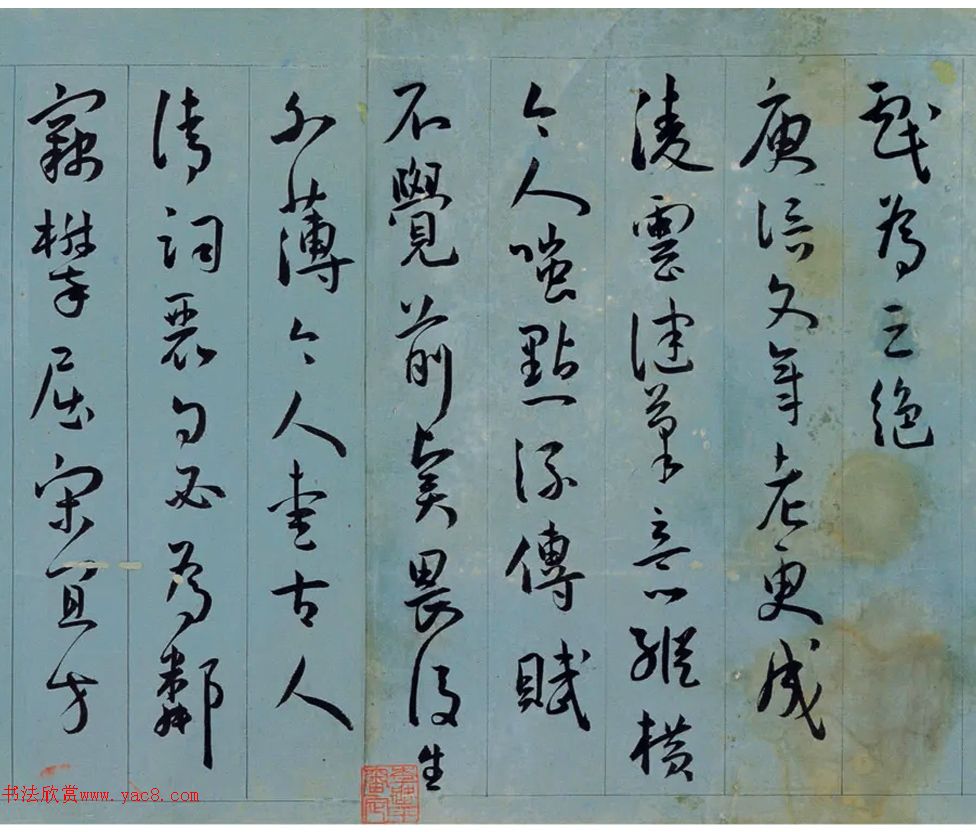 戲為三絕
庾信文章老更成
凌雲健筆意縱橫
今人嗤點流傳賦
不覺前賢畏後生
不薄今人愛古人
清詞麗句必為鄰
竊攀屈宋宜方
书法欣赏www.yac8.com